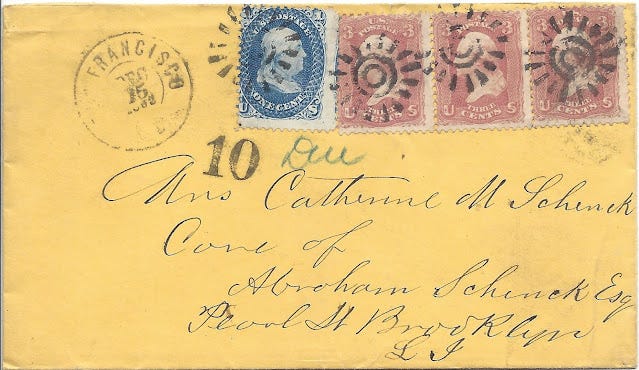 FRANCISCO
DEC
15
U.S. POSTAGE
ONE CENT
U S
3 3
U.S.
POSTAGE
U THREE S
CENTS
3
U THREE S
CENTS
3
U THREE S
CENTS
10 Due
Mrs Catherine M Schenck
Care of
Abraham Schenck Esq
Pearl St Brooklyn
L I